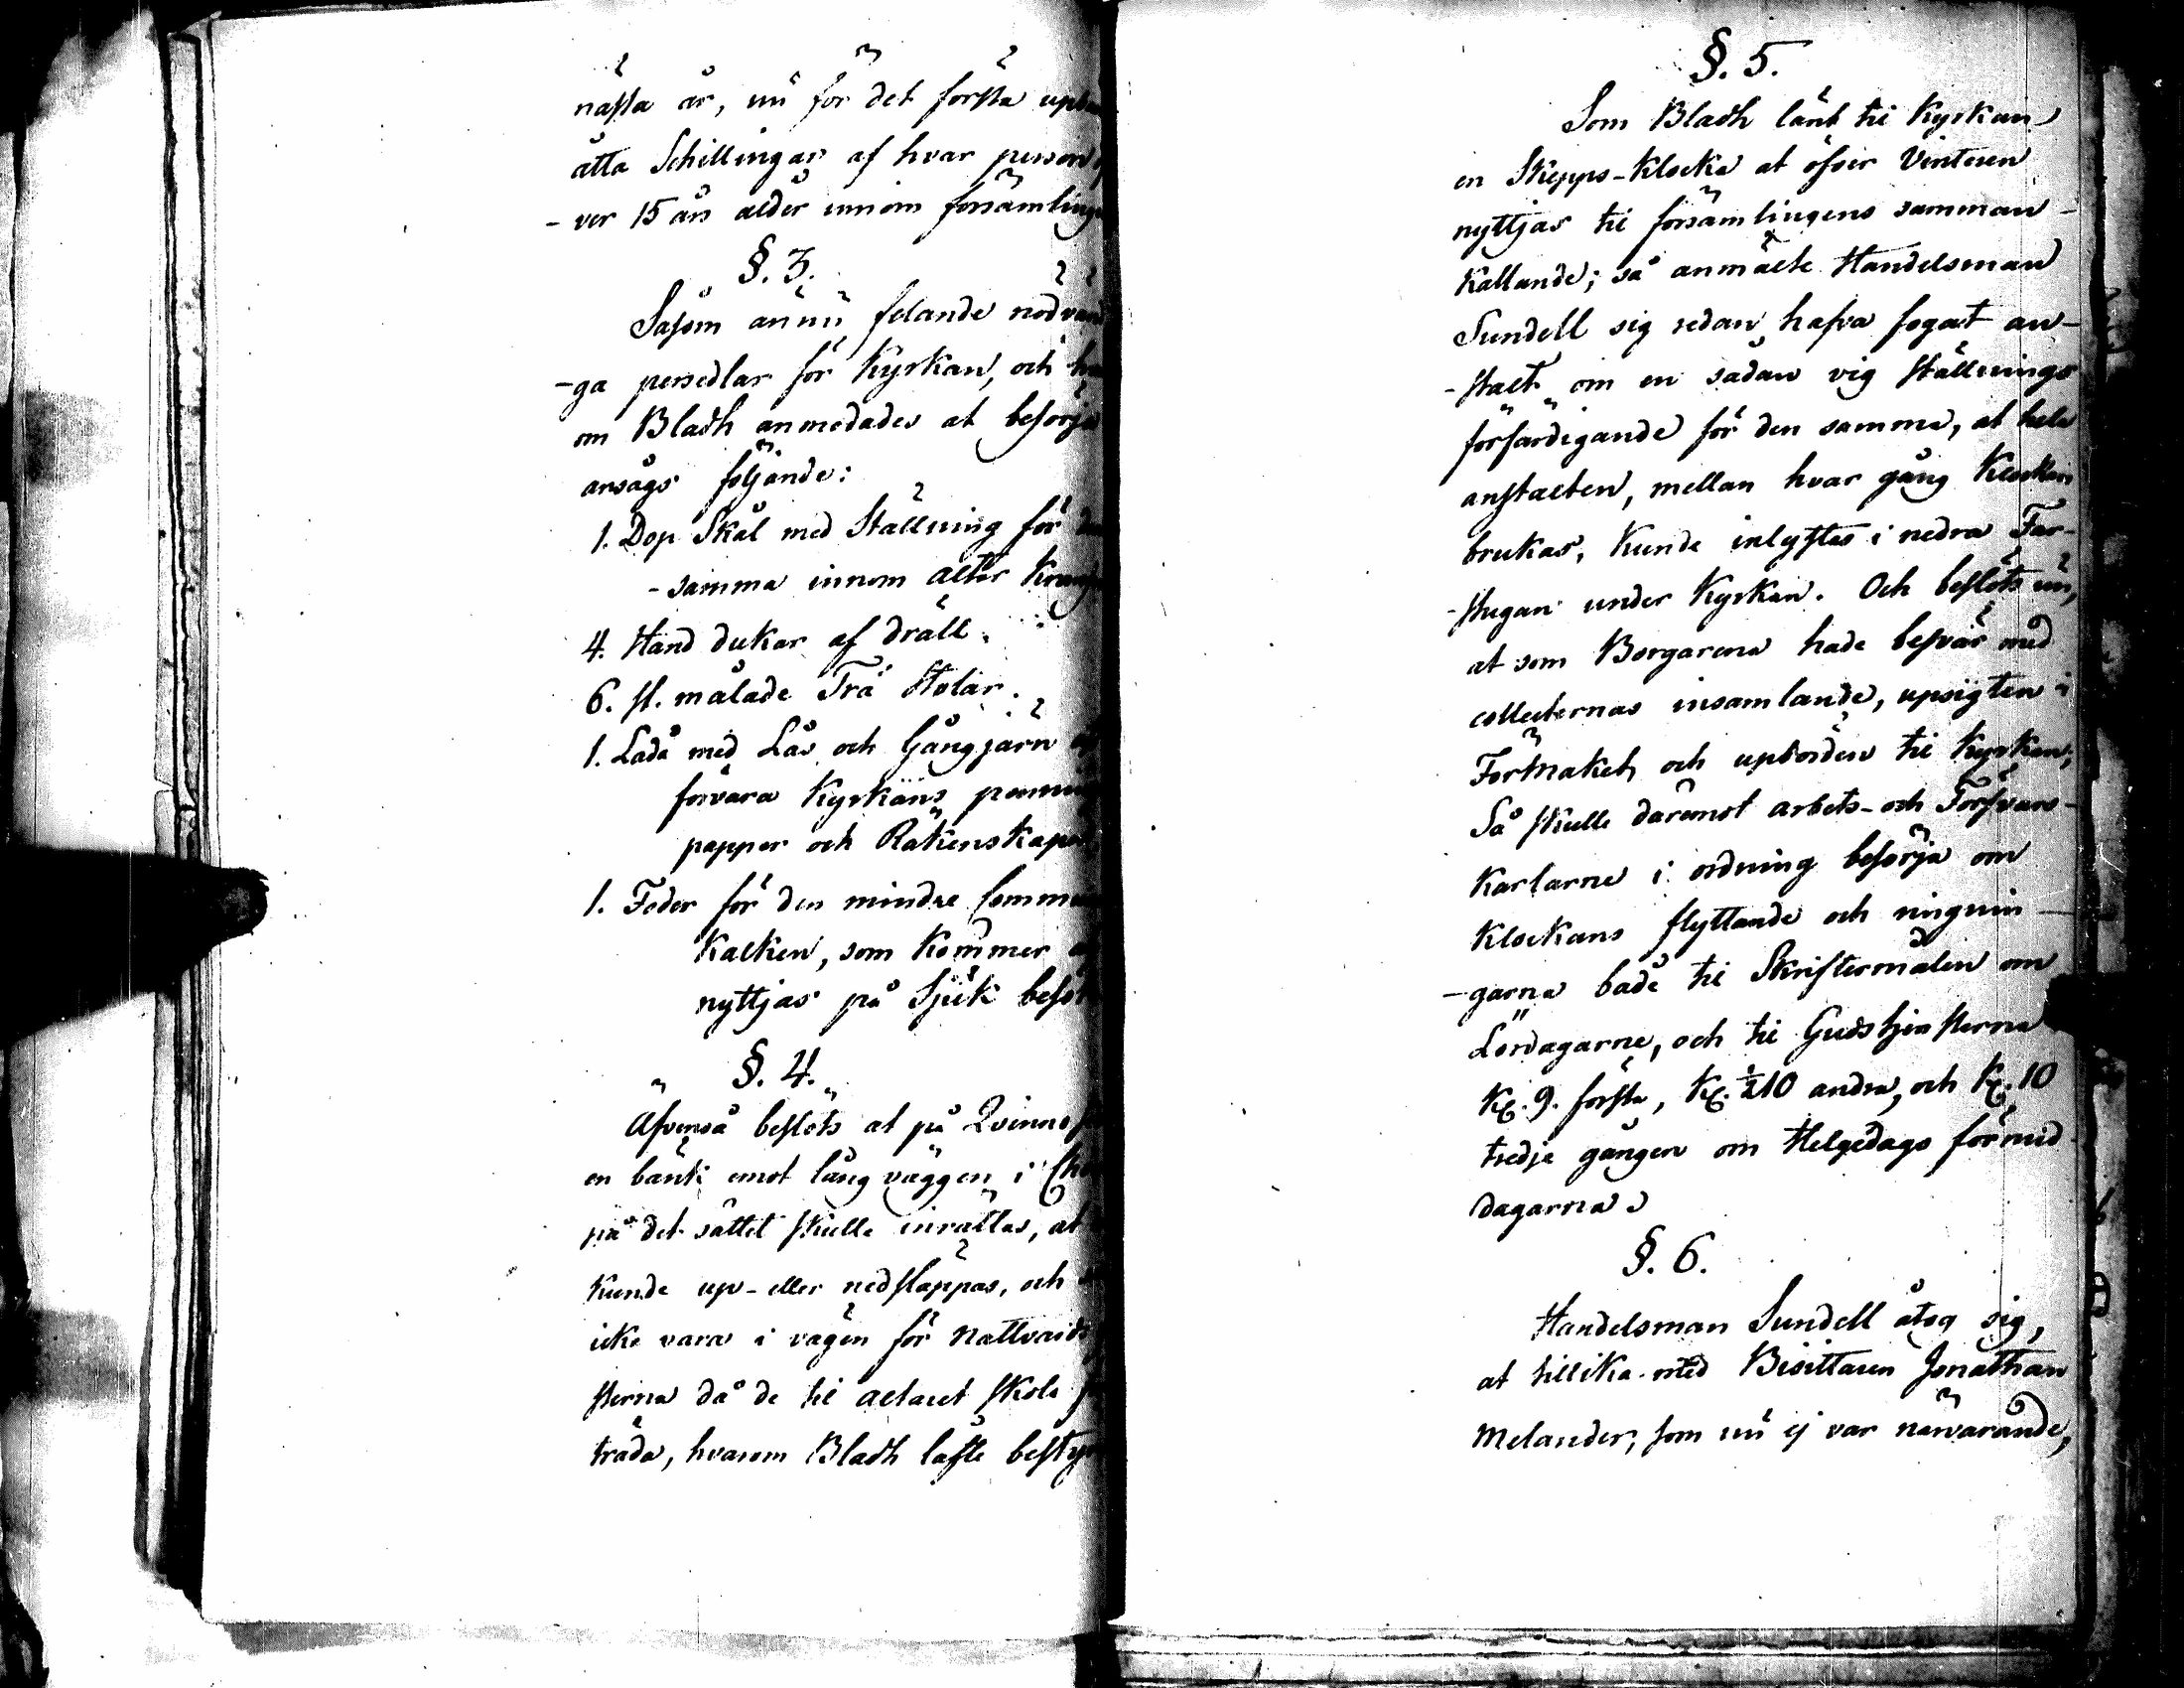 nästa år, nu för det första
åtta Schillingar af hvar person
- ver 15 års ålder innom församling
§. 3.
Såsom ännu felande nödvän
-ga persedlar för Kyrkan, och
om Bladh anmodades at besörja
ansågs följande:
1. Dop Skål med Ställning för den
- samma innom altar
4. Hand dukar af dräll.
6. st. målade Trä Stolar.
1. Låda med Lås och Gångjärn
förvara Kyrkans penning
papper och Räkenskaper
1. Foder för den mindre Commun
Kalken, som kommer
nyttjas på Sjuk besök
§. 4.
Äfvenså beslöts at på Qvinno
en bänk emot lång väggen i Cho
på det sättet skulle inrättas, at
kunde up- eller nedsläppas, och
icke vara i vägen för Nattvards
sterna då de til altaret skola
träda, hvarom Bladh låfte besty
§. 5.
Som Bladh länt til Kyrkan
en Skepps-Klocka at öfver Vinteren
nyttjas til församlingens samman-
kallande; så anmälte Handelsman
Sundell sig redan hafva fogat an-
-stalt om en sådan vig ställnings
förfärdigande för den samma, at hela
anstalten, mellan hvar gång Klockan
brukas, kunde inlyftas i nedra Far-
-stugan under Kyrkan. Och beslöts nu,
at som Borgarena hade besvär med
collecternas insamlande, upsigten i
Förmaket, och upbörden til Kyrkan;
Så skulle däremot arbets- och Försvars-
Karlarne i ordning besörja om
Klockans flyttande och ringnin-
-garna både til Skriftermålen om
Lördagarne, och til Gudstjensterna
Kl. 9. första, Kl. ½10 andra, och Kl. 10
tredje gången om Helgedags förmid-
dagarna.
§. 6.
Handelsman Sundell åtog sig,
at tillika med Bisittaren Jonathan
Melander, som nu ej var närvarande,